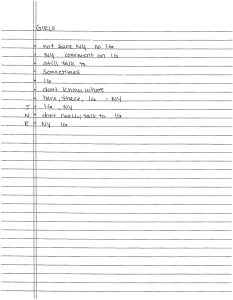 GIRLS
• not sure NY no IG
• NY comment on IG
• still talk to
• sometimes
• IG
• dont know where
• here, there, IG - NY
J • IG, NY
N • dont really talk to IG
E • NY IG